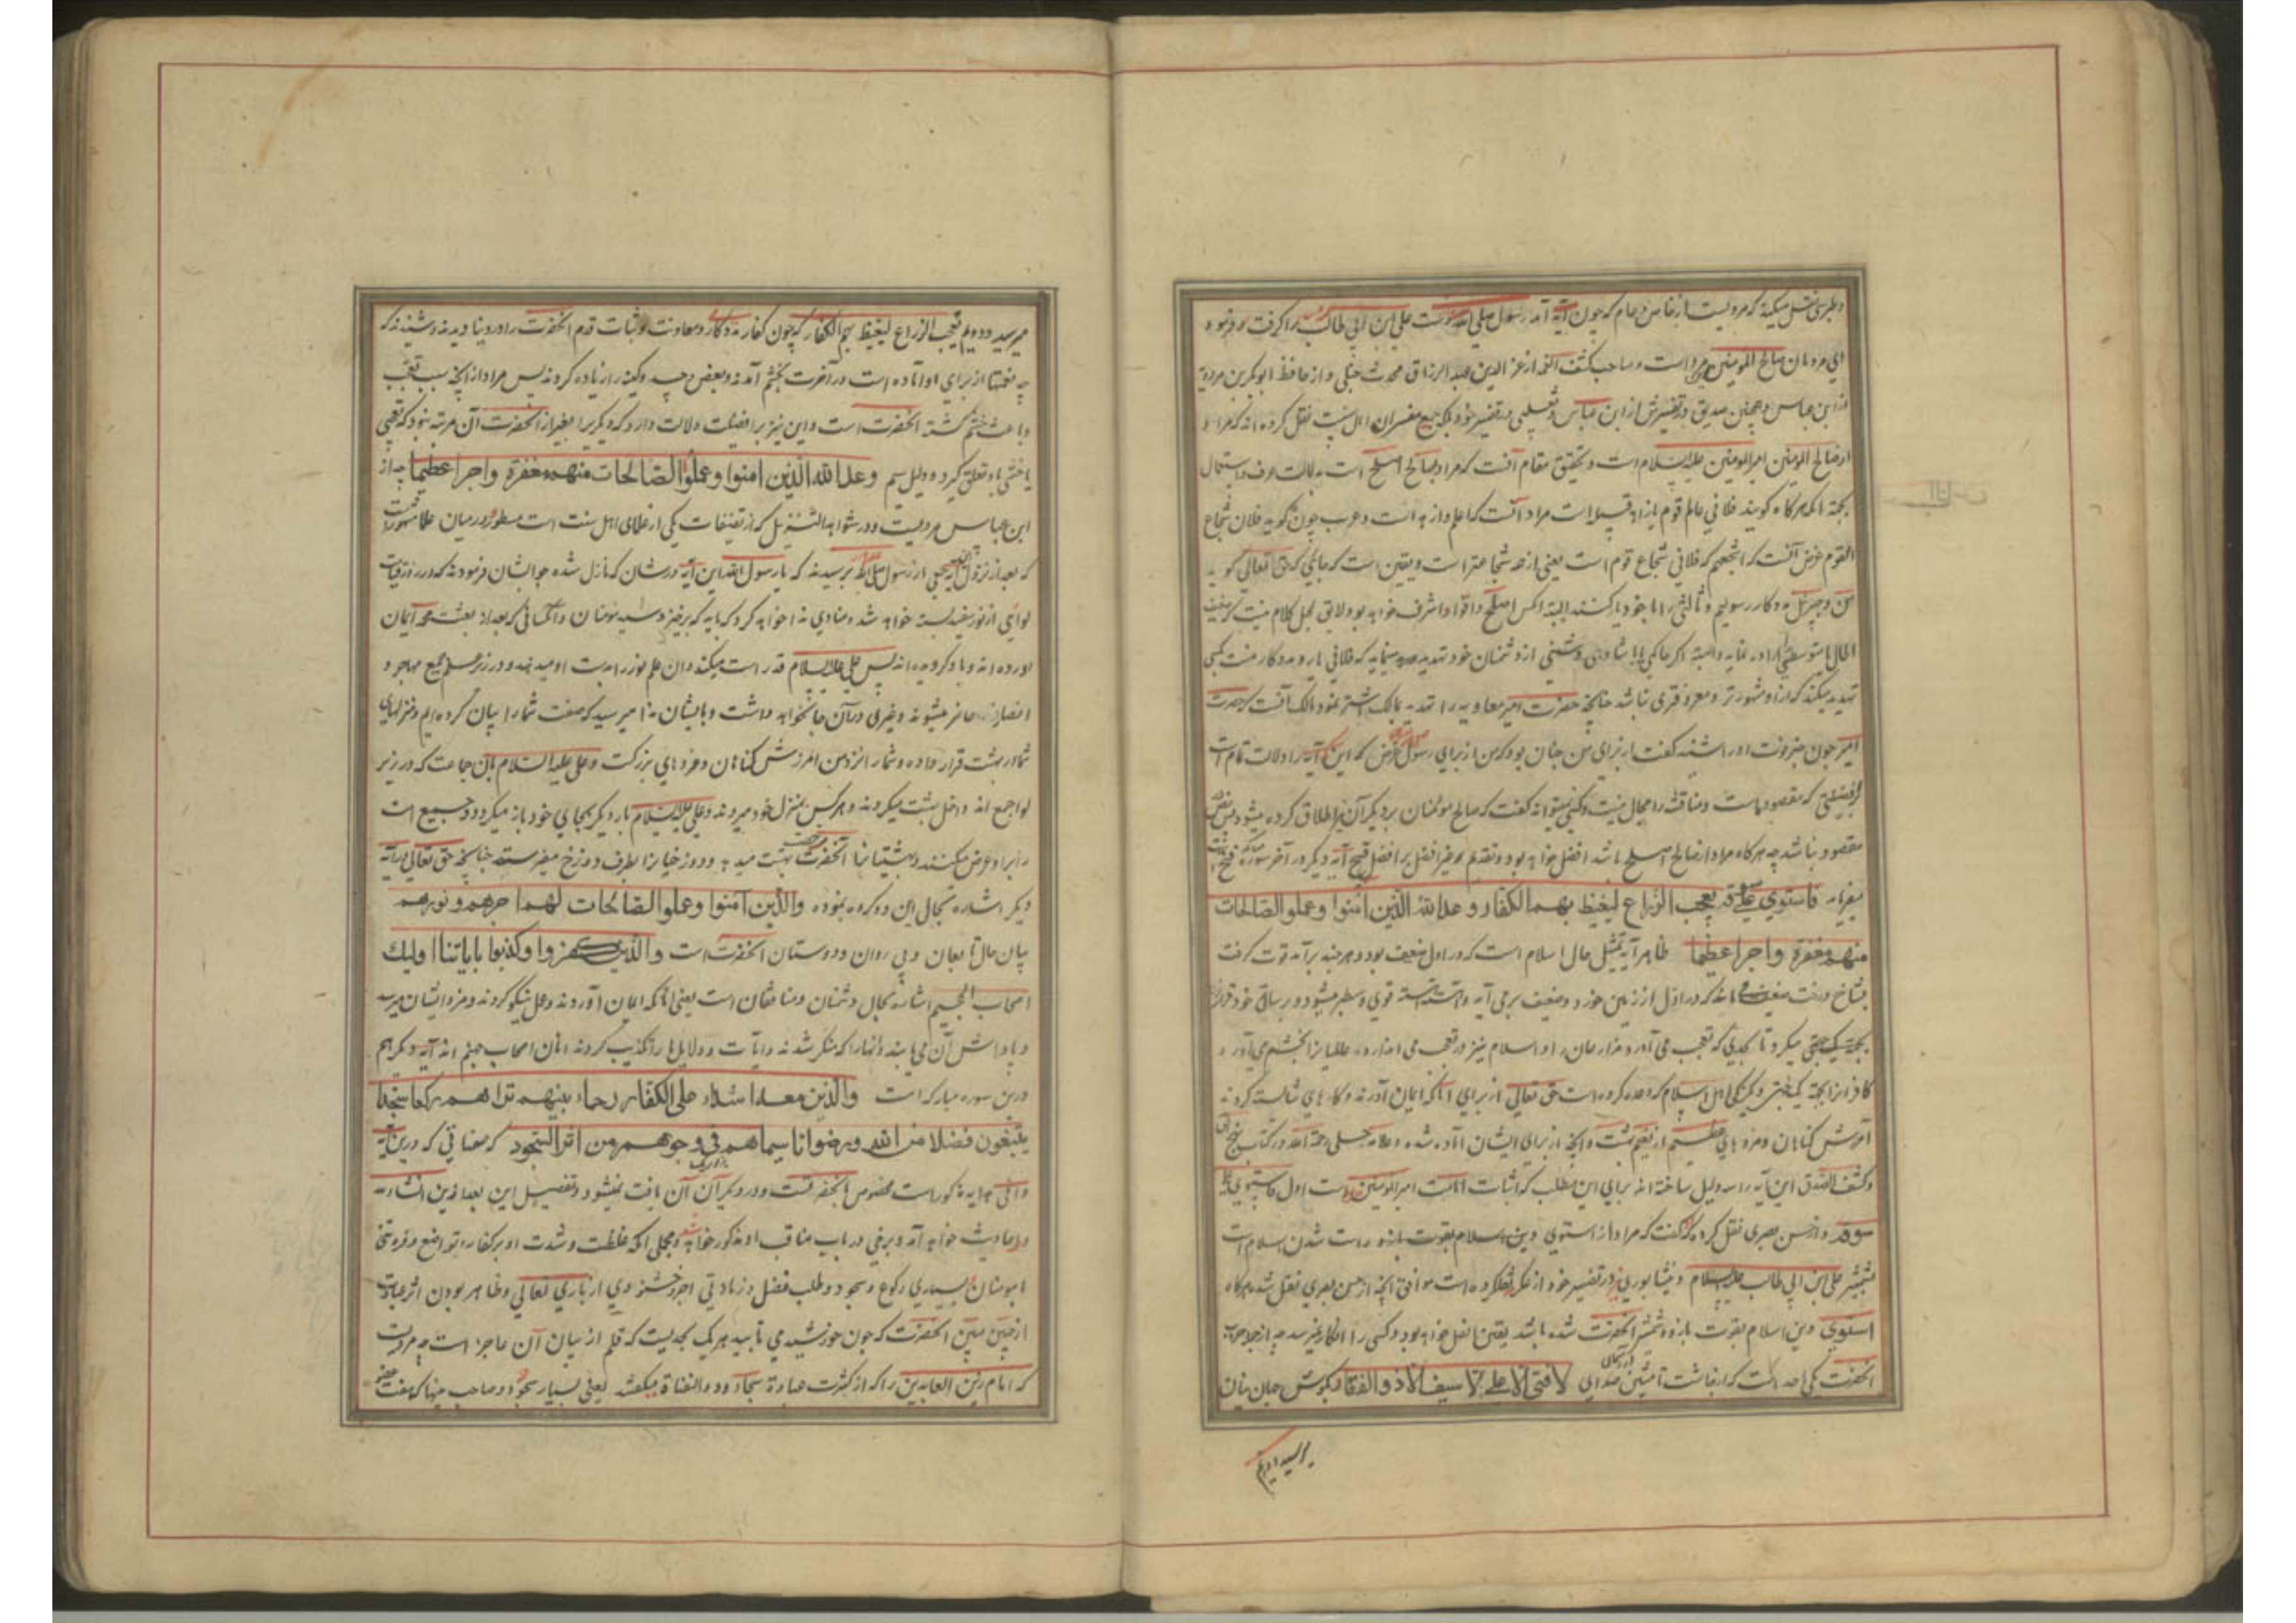 و طبرسی نقل میکند که مرویست از خاص و عام که چون آیه آمد رسول صلی الله دست علی ابن ابی طالب را گرفت و فرمود
ای مردمان صالح المومنین اینمرد است و صاحب کشف الغمه از عز الدین عبد الرزاق محدث حنبلی و از حافظ ابو بکر بن مردویه
از ابن عباس و همچنین در تفسیرش از ابن عباس و ثعلبی در تفسیر خود بلکه جمیع مفسران اهل سنت نقل کرده اند که مراد
از صالح المومنین امیر المومنین علیه السلام است و تحقیق مقام آنست که مراد بصالح اصلح است بدلالت عرف و استعمال
بجهة آنکه هرگاه گویند فلانی عالم قوم یا زاهد قبیله است مراد آنست که اعلم و ازهد است و عرب چون گوید فلان شجاع
القوم غرض آنست که اشجعهم که فلانی شجاع قوم است یعنی از همه شجاعتر است و یقین است که جایی که حق تعالی گوید
من و جبرئیل مددکار رسولیم و ثالثی را با خود یار کنند البته آنکس اصلح و اقوا و اشرف خواهد بود و لایق بحال کلام نیست که ضعیف
الحال یا متوسطی را اراده نماید و البته اگر حاکمی یا پادشاهی دشمنی از دشمنان خود تهدید مینماید که فلانی یار و مددکار منست بکسی
تهدید میکند که از او مشهورتر و معروفتری نباشد چنانچه حضرت امیر معاویه را تهدید بمالک اشتر نمود و مالک آنست که حضرت
امیر چون خبر فوت او را شنید گفت او برای من چنان بود که من از برای رسول غرض که این آیه را دلالت تام است
بر افضلیتی که مقصود ماست و مناقشه را مجال نیست و کسی نمیتواند گفت که صالح مؤمنان بر دیگر آن نیز اطلاق کرده میشود پس نص
مقصود نباشد چه هرگاه مراد از صالح اصلح باشد افضل خواهد بود و تقدم غیر افضل بر افضل قبیح آیه دیگر در آخر سوره فتح
میفرماید فاستوی علی سوقه یعجب الزراع لیغیظ بهم الکفار وعد الله الذین امنوا وعملو الصالحات
منهم مغفرة واجرا عظیما ظاهر آیه تمثیل حال اسلام است که در اول ضعیف بود و هر چند برآمد قوت گرفت
بشاخ درخت ضعیف ماند که در اول از زمین خورد و ضعیف برمی آید و آهسته آهسته قوی و سطبر میشود و بر ساق خود قرار
میگیرد تا بحدی که تعجب می آورد مزارعان را و اسلام نیز در تعجب می اندازد
کافرانرا بجهة اهل اسلام که وعده کرده است حق تعالی از برای آنانکه ایمان آورند و کارهای شایسته کردند
آمرزش گناهان و مزدهای عظیم از نعیم بهشت و آنچه از برای ایشان آماده شده و علامه حلی رحمة الله در کتاب نهج الحق
و کشف الصدق این آیه را سه دلیل ساخته اند برای این مطلب که اثبات امامت امیر المومنین است اول فاستوی علی
سوقه و از حسن بصری نقل کرده که گفت که مراد از استوی دین اسلام بقوت بازو راست شدن اسلام است
بشمشیر علی ابن ابی طالب علیه السلام و نیشابوری نیز در تفسیر خود از عکرمه نقلکرده است موافق آنچه از حسن بصری نقل شد هرگاه
استوی دین اسلام بقوت بازو و شمشیر آنحضرت شده باشد یقین افضل خواهد بود و کسی را انکار نمیرسد چه از جمله حرب
آنحضرت یکی احد است که ملائکه صدای لا فتی الا علی لا سیف الا ذو الفقار بگوش جهانیان
میرسید دویم
میرسید دویم یعجب الزراع لیغیظ بهم الکفار که چون کفار مددکار و معاونت و ثبات قدم آنحضرت را در دنیا دیدند و شنیدند که
چه نعمتها از برای او آماده است در آخرت بخشم آمدند و بعضی حسد و کینه را زیاده کردند پس مراد از آنچه سبب تعجب
و باعث خشم گشته آنحضرت است و این نیز بر افضلیت دلالت دارد که دیگریرا بغیر از آنحضرت آن مرتبه نبود که تعجبی
یا خشمی باو تعلق گیرد و دلیل سیم وعد الله الذین امنوا وعملوا الصالحات منهم مغفرة واجرا عظیما چه از
ابن عباس مرویست و در شواهد التنزیل که از تصنیفات یکی از علمای اهل سنت است مسطور و در میان علما مشهور است
که بعد از نزول آیه جمعی از رسول صلی الله پرسیدند که یا رسول الله این آیه در شان که نازل شده جوابشان فرمودند که در روز قیامت
لوای از نور سفید بسته خواهد شد و منادی ندا خواهد کرد که باید که برخیزد سید مومنان و آنکسانی که بعد از بعثت محمد ایمان
آورده اند و باو گرویده اند پس علی علیه السلام قد راست میکند و آن علم نور را بدست او میدهند و در زیر علم جمیع مهاجر و
انصار حاضر میشوند و غیری در آن جا نخواهد داشت و بایشان ندا میرسد که صفت شما را بیان کرده ایم و منزلهای
شما در بهشت قرار داده و شما را نزد من آمرزش گناهان و مزدهای بزرگست و علی علیه السلام بآن جماعت که در زیر
لوا جمع اند داخل بهشت میگردند و هر کس بمنزل خود میروند و علی علیه السلام بار دیگر بجای خود باز میگردد و جمیع امت
را بر او عرض میکنند و بهشتیانرا آنحضرت بهشت میدهد و دوزخیانرا بطرف دوزخ میفرستد چنانچه حق تعالی در آیه
دیگر اشاره بحال این دو گروه نموده والذین آمنوا وعملو الصالحات لهم اجرهم ونورهم
بیان حال تابعان و پی روان و دوستان آنحضرت است والذین کفروا وکذبوا بایاتنا اولیك
اصحاب الجحیم اشاره بحال دشمنان و منافقان است یعنی آنانکه ایمان آوردند و عمل نیکو کردند و مزد ایشان میرسد
و پاداش آن می یابند و آنها را که منکر شدند و آیات و دلایل ما را تکذیب کردند آنان اصحاب جهنم اند آیه دیگر هم
درین سوره مبارکه است والذین معه اشداء علی الکفار رحماء بینهم تراهم رکعا سجدا
یبتغون فضلا من الله ورضوانا سیماهم فی وجوههم من اثر السجود که صفاتی که درین آیه
وافی هدایه مذکور است مخصوص آنحضرتست و در دیگر آن یافت نمیشود و تفصیل این بعد ازین انشاء
در احادیث خواهد آمد و برخی در باب مناقب او مذکور خواهد شد و مجملی آنکه غلظت و شدت او بر کفار و تواضع و فروتنی
با مومنان بسیاری رکوع و سجود و طلب فضل و زیادتی اجر و خشنودی از باری تعالی و ظاهر بودن اثر عبادت
از جبین مبین آنحضرت که چون خورشید می تابید هر یک بحدیست که قلم از بیان آن عاجز است چه مرویست
که امام زین العابدین را که از کثرت عبادة سجاد و ذو الثفنات میگفتند یعنی بسیار سجود و صاحب پینها که هفت